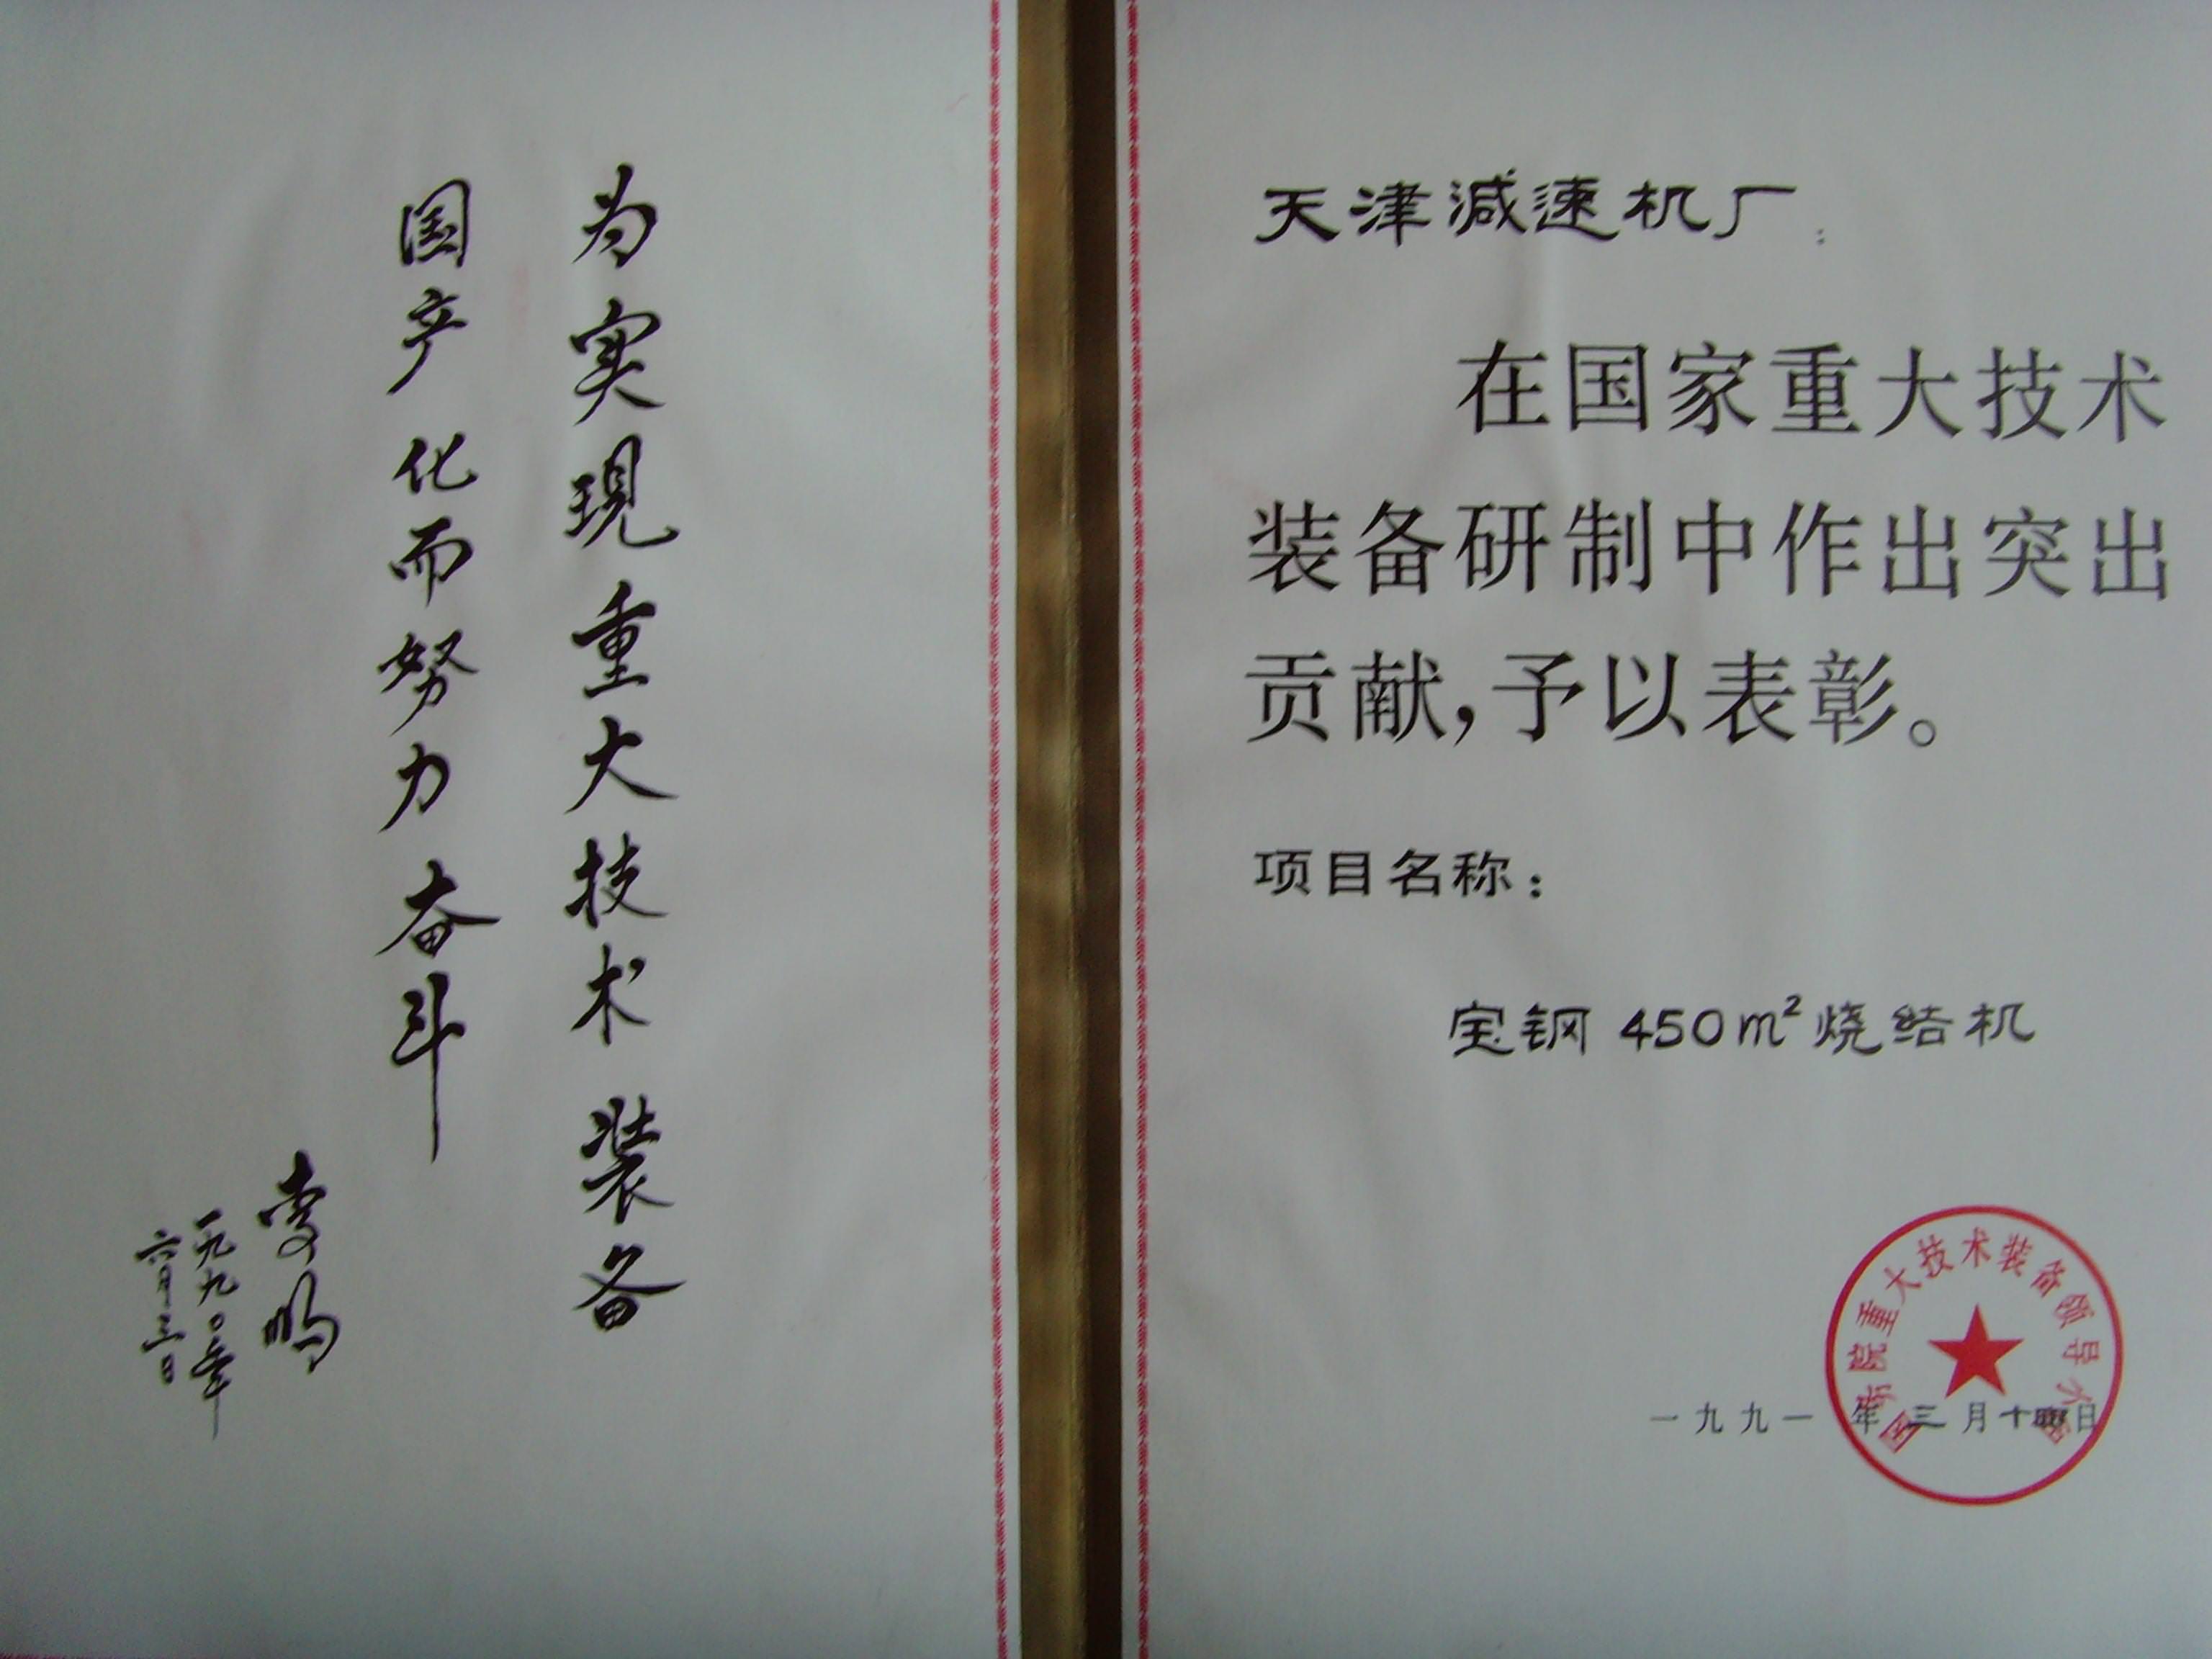 为实现重大技术装备
国产化而努力奋斗
李鹏
一九九〇年
六月三日
天津减速机厂：
在国家重大技术
装备研制中作出突出
贡献，予以表彰。
项目名称：
宝钢450m²烧结机
国务院重大技术装备领导小组
一九九一年三月十四日